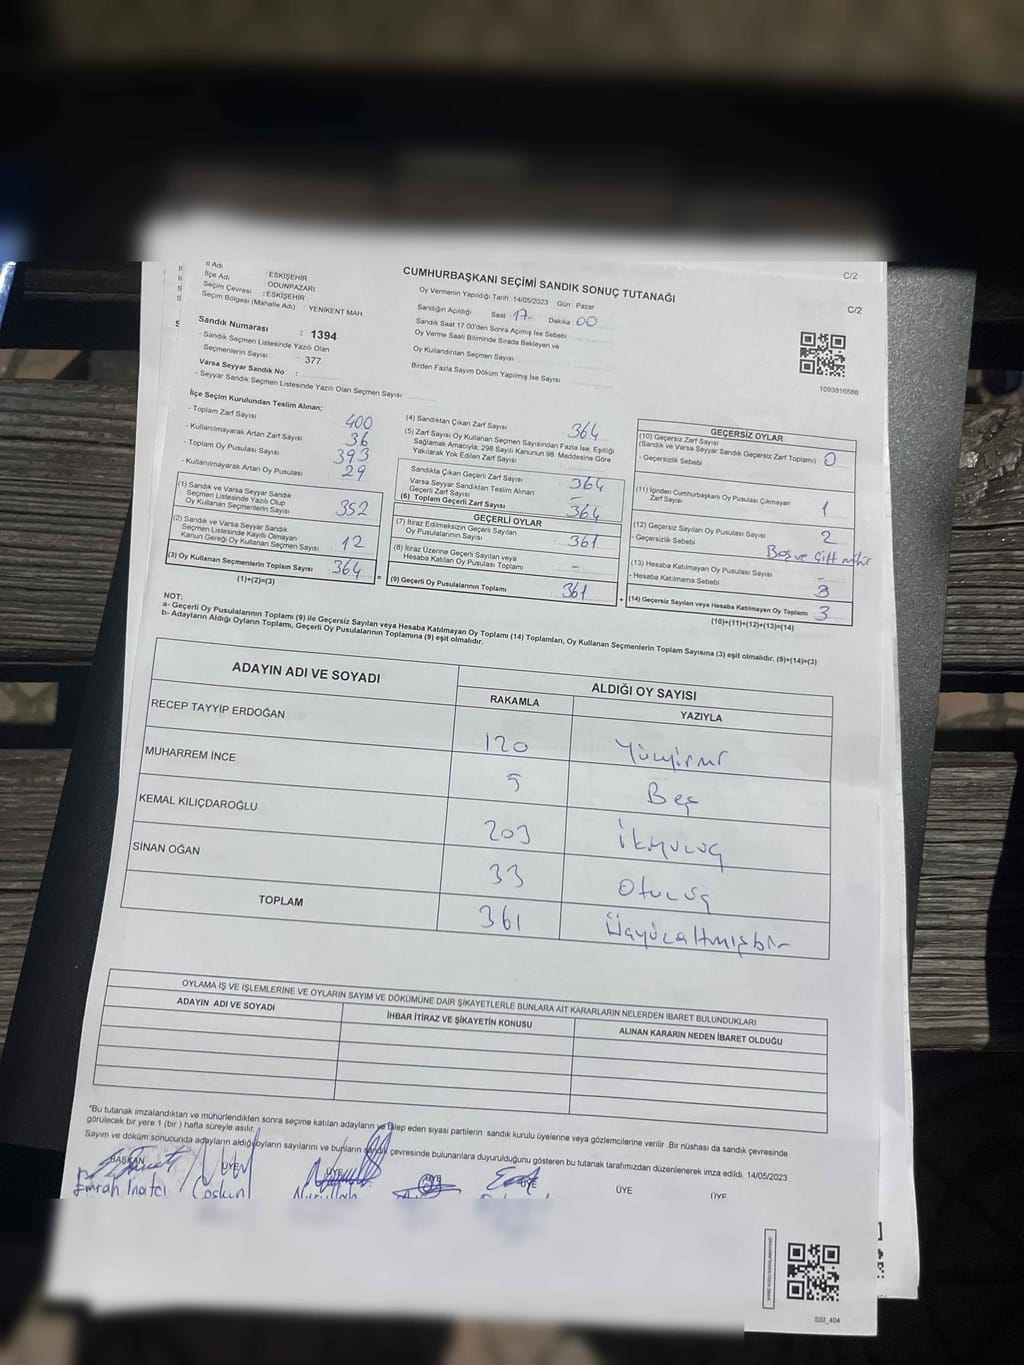 İl Adı : ESKİŞEHİR
İlçe Adı : ODUNPAZARI
Seçim Çevresi : ESKİŞEHİR
Seçim Bölgesi (Mahalle Adı) : YENİKENT MAH.
CUMHURBAŞKANI SEÇİMİ SANDIK SONUÇ TUTANAĞI
C/2
C/2
Oy Vermenin Yapıldığı Tarih :14/05/2023 Gün : Pazar
Sandığın Açıldığı Saat : 17 Dakika : 00
Sandık Saat 17.00'den Sonra Açılmış İse Sebebi
Oy Verme Saati Bitiminde Sırada Bekleyen ve
Oy Kullandırılan Seçmen Sayısı
Birden Fazla Sayım Döküm Yapılmış İse Sayısı
1093816588
Sandık Numarası : 1394
- Sandık Seçmen Listesinde Yazılı Olan
Seçmenlerin Sayısı : 377
Varsa Seyyar Sandık No :
- Seyyar Sandık Seçmen Listesinde Yazılı Olan Seçmen Sayısı:
İlçe Seçim Kurulundan Teslim Alınan;
- Toplam Zarf Sayısı 400
- Kullanılmayarak Artan Zarf Sayısı 36
- Toplam Oy Pusulası Sayısı 393
- Kullanılmayarak Artan Oy Pusulası 29
(1) Sandık ve Varsa Seyyar Sandık
Seçmen Listesinde Yazılı Olup
Oy Kullanan Seçmenlerin Sayısı 352
(2) Sandık ve Varsa Seyyar Sandık
Seçmen Listesinde Kayıtlı Olmayan
Kanun Gereği Oy Kullanan Seçmen Sayısı 12
(3) Oy Kullanan Seçmenlerin Toplam Sayısı 364
(1)+(2)=(3)
(4) Sandıktan Çıkan Zarf Sayısı 364
(5) Zarf Sayısı Oy Kullanan Seçmen Sayısından Fazla İse, Eşitliği
Sağlamak Amacıyla; 298 Sayılı Kanunun 98. Maddesine Göre
Yakılarak Yok Edilen Zarf Sayısı
Sandıkta Çıkan Geçerli Zarf Sayısı 364
Varsa Seyyar Sandıktan Teslim Alınan
Geçerli Zarf Sayısı -
(6) Toplam Geçerli Zarf Sayısı 364
GEÇERLİ OYLAR
(7) İtiraz Edilmeksizin Geçerli Sayılan
Oy Pusulalarının Sayısı 361
(8) İtiraz Üzerine Geçerli Sayılan veya
Hesaba Katılan Oy Pusulası Toplamı -
(9) Geçerli Oy Pusulalarının Toplamı 361
GEÇERSİZ OYLAR
(10) Geçersiz Zarf Sayısı
(Sandık ve Varsa Seyyar Sandık Geçersiz Zarf Toplamı) 0
- Geçersizlik Sebebi
(11) İçinden Cumhurbaşkanı Oy Pusulası Çıkmayan
Zarf Sayısı 1
(12) Geçersiz Sayılan Oy Pusulası Sayısı 2
- Geçersizlik Sebebi : Boş ve Çift mühür
(13) Hesaba Katılmayan Oy Pusulası Sayısı -
- Hesaba Katılmama Sebebi 3
(14) Geçersiz Sayılan veya Hesaba Katılmayan Oy Toplamı 3
(10)+(11)+(12)+(13)=(14)
NOT:
a- Geçerli Oy Pusulalarının Toplamı (9) ile Geçersiz Sayılan veya Hesaba Katılmayan Oy Toplamı (14) Toplamları, Oy Kullanan Seçmenlerin Toplam Sayısına (3) eşit olmalıdır. (9)+(14)=(3)
b- Adayların Aldığı Oyların Toplamı, Geçerli Oy Pusulalarının Toplamına (9) eşit olmalıdır.
ADAYIN ADI VE SOYADI
ALDIĞI OY SAYISI
RAKAMLA YAZIYLA
RECEP TAYYİP ERDOĞAN 120 Yüzyirmi
MUHARREM İNCE 5 Beş
KEMAL KILIÇDAROĞLU 203 İkiyüzüç
SİNAN OĞAN 33 Otuzüç
TOPLAM 361 Üçyüzaltmışbir
OYLAMA İŞ VE İŞLEMLERİNE VE OYLARIN SAYIM VE DÖKÜMÜNE DAİR ŞİKAYETLERLE BUNLARA AİT KARARLARIN NELERDEN İBARET BULUNDUKLARI
ADAYIN ADI VE SOYADI İHBAR İTİRAZ VE ŞİKAYETİN KONUSU ALINAN KARARIN NEDEN İBARET OLDUĞU
*Bu tutanak imzalandıktan ve mühürlendikten sonra seçime katılan adayların ve talep eden siyasi partilerin sandık kurulu üyelerine veya gözlemcilerine verilir. Bir nüshası da sandık çevresinde
görülecek bir yere 1 (bir ) hafta süreyle asılır.
Sayım ve döküm sonucunda adayların aldığı oyların sayılarını ve bunların sandık çevresinde bulunanlara duyurulduğunu gösteren bu tutanak tarafımızdan düzenlenerek imza edildi. 14/05/2023
BAŞKAN ÜYE ÜYE ÜYE ÜYE ÜYE ÜYE
Emrah Coşkun
SSI_404